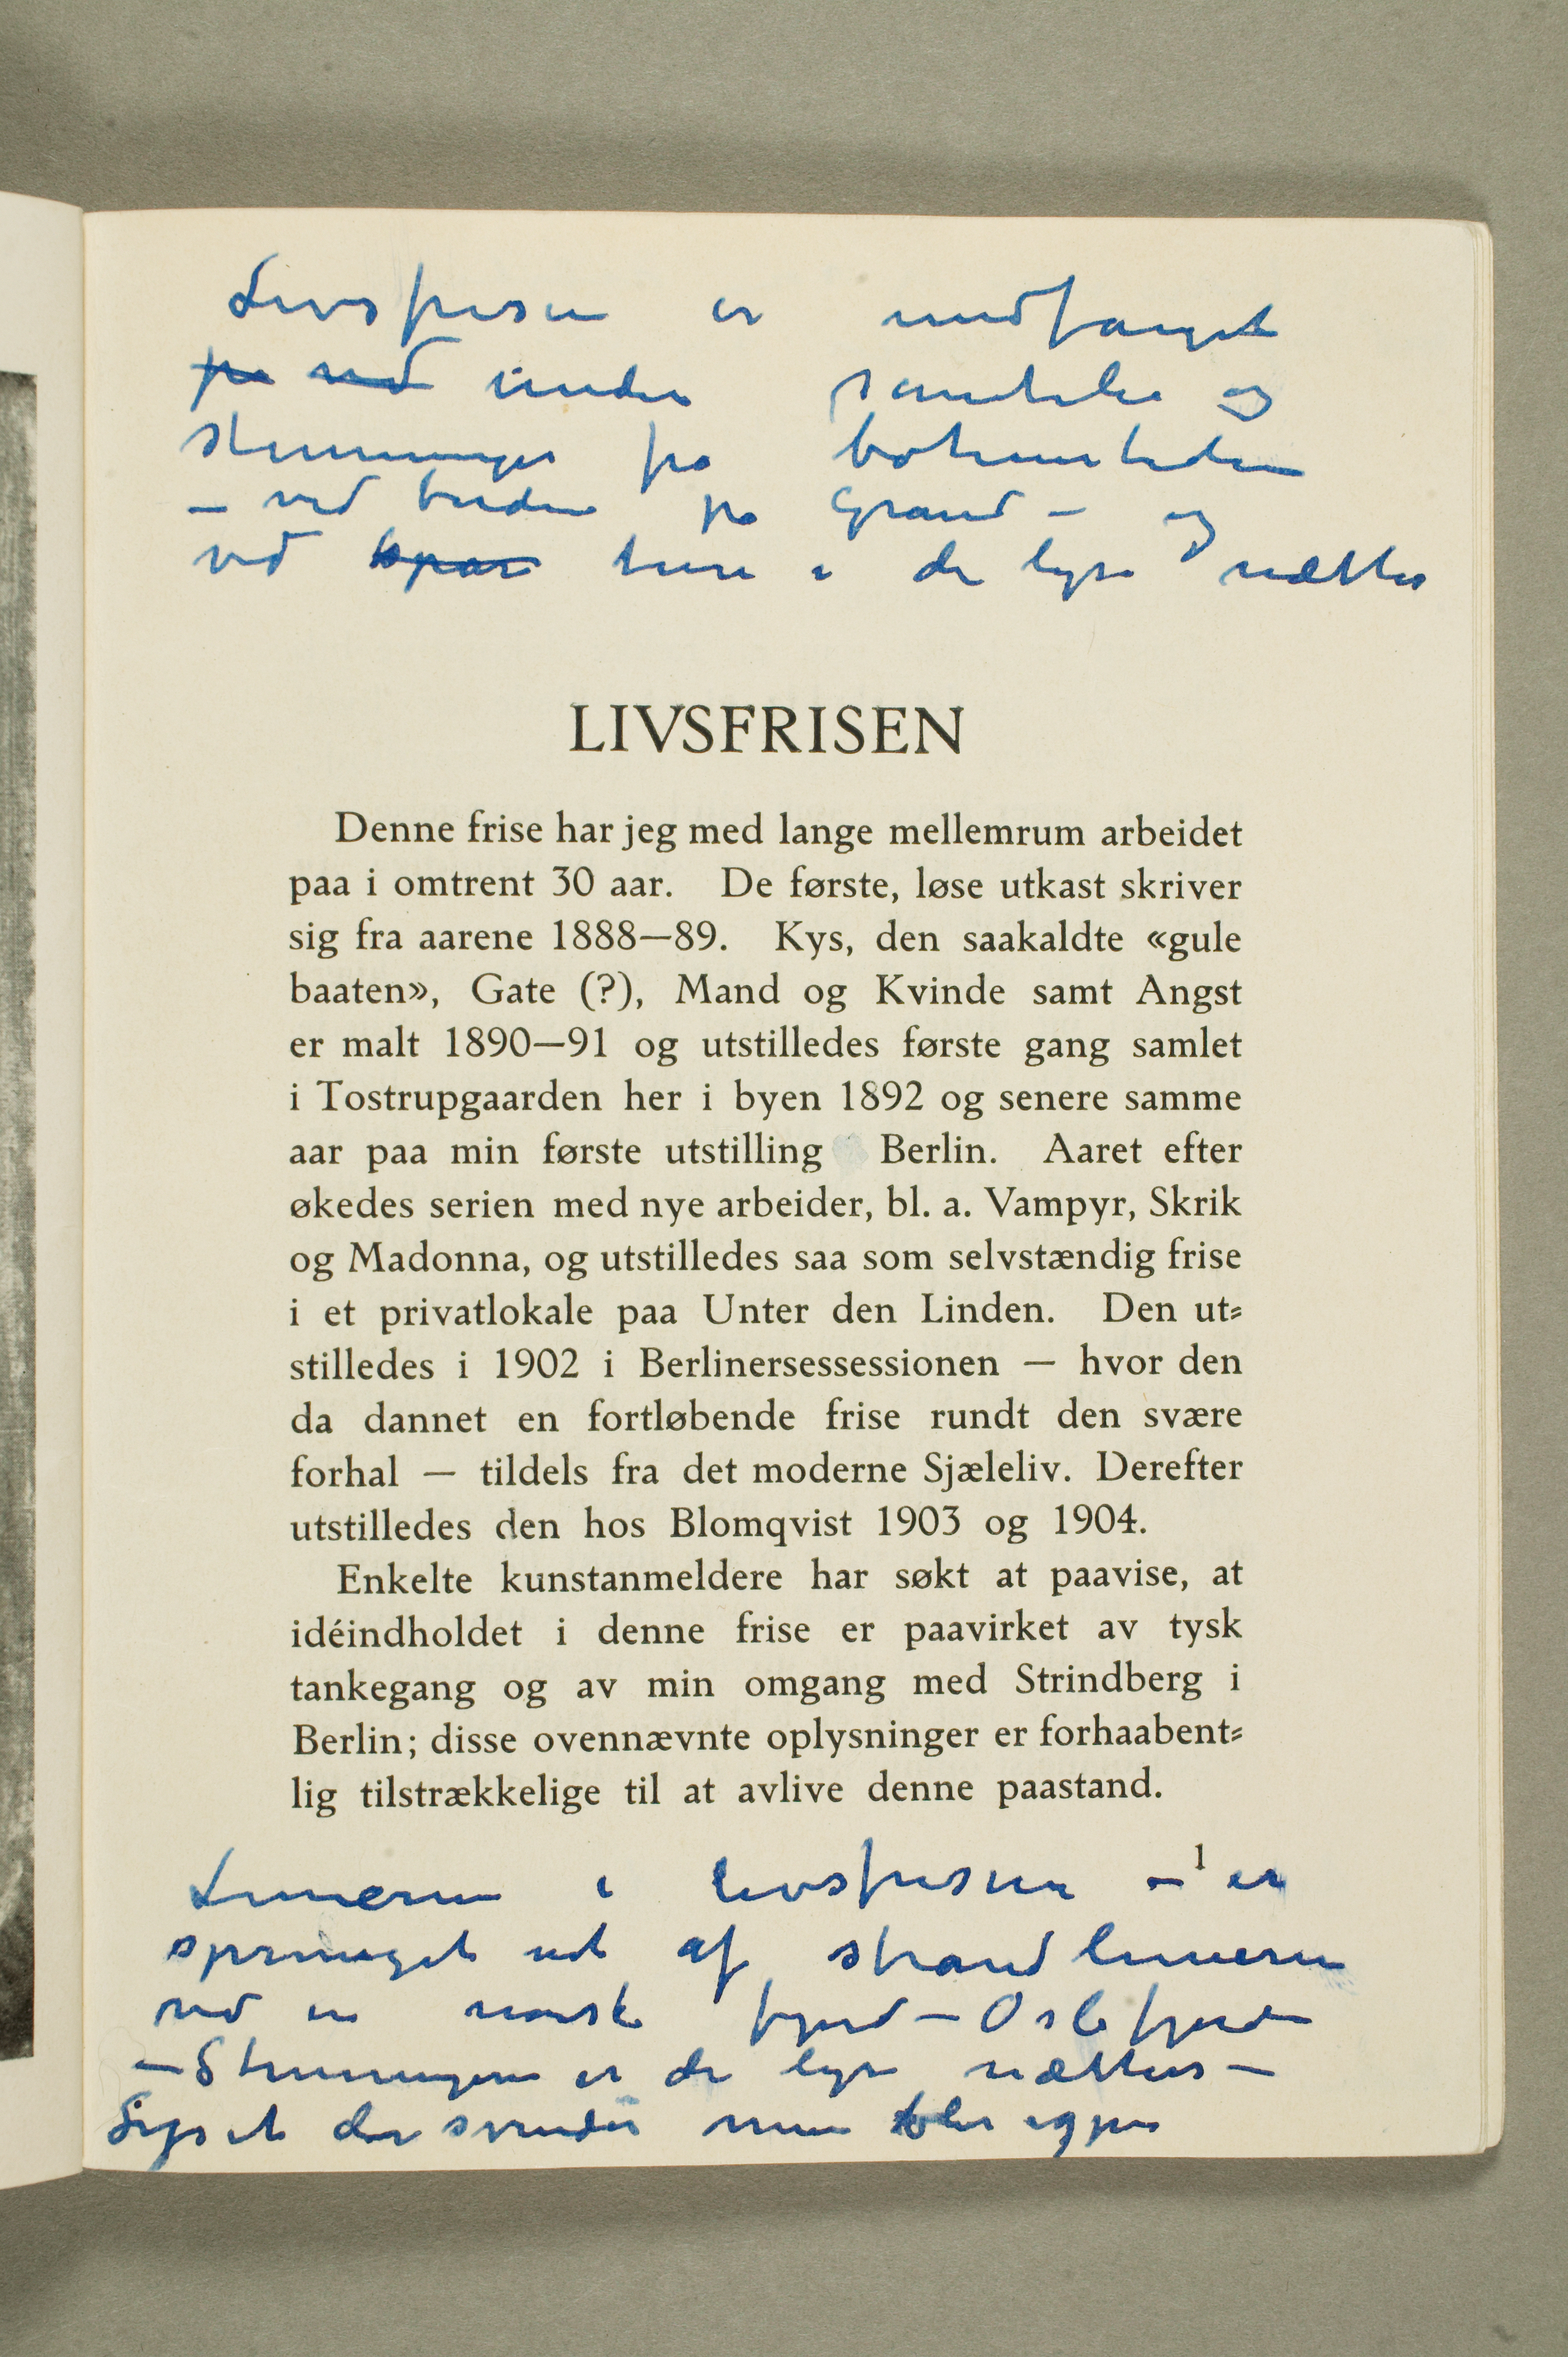 Livsfrisen er undfanget
fra ved under samtaler og
stemninger fra bohemetiden
– ved bordene på Grand – og
ved spas ture i de lyse nætter
LIVSFRISEN
Denne frise har jeg med lange mellemrum arbeidet
paa i omtrent 30 aar. De første, løse utkast skriver
sig fra aarene 1888—89. Kys, den saakaldte «gule
baaten», Gate (?), Mand og Kvinde samt Angst
er malt 1890—91 og utstilledes første gang samlet
i Tostrupgaarden her i byen 1892 og senere samme
aar paa min første utstilling Berlin. Aaret efter
økedes serien med nye arbeider, bl. a. Vampyr, Skrik
og Madonna, og utstilledes saa som selvstændig frise
i et privatlokale paa Unter den Linden. Den ut-
stilledes i 1902 i Berlinersessessionen — hvor den
da dannet en fortløbende frise rundt den svære
forhal — tildels fra det moderne Sjæleliv. Derefter
utstilledes den hos Blomqvist 1903 og 1904.
Enkelte kunstanmeldere har søkt at paavise, at
idéindholdet i denne frise er paavirket av tysk
tankegang og av min omgang med Strindberg i
Berlin; disse ovennævnte oplysninger er forhaabent-
lig tilstrækkelige til at avlive denne paastand.
1
Linjerne i livsfrisen – er
sprunget ud af strandlinjerne
ved en norsk fjord – Oslofjorden
– Stemningen er de lyse nætters –
Lyset der svinder men blir igjen